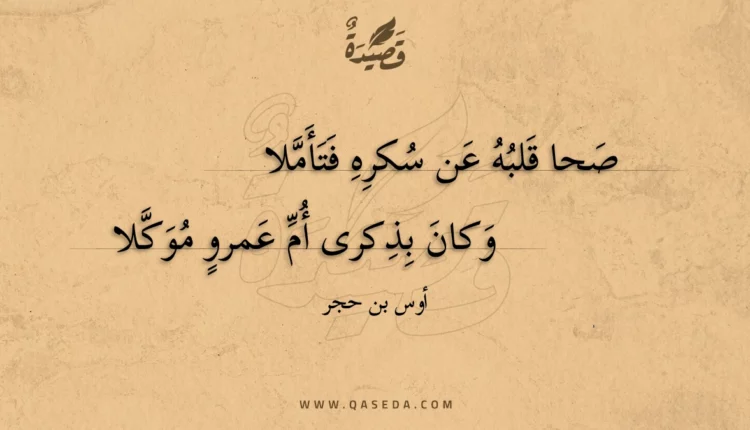 قَصِيْدَةٌ
صَحا قَلبُهُ عَن سُكرِهِ فَتَأَمَّلا
وَكانَ بِذِكرى أُمِّ عَمروٍ مُوَكَّلا
أوس بن حجر
WWW.QASEDA.COM